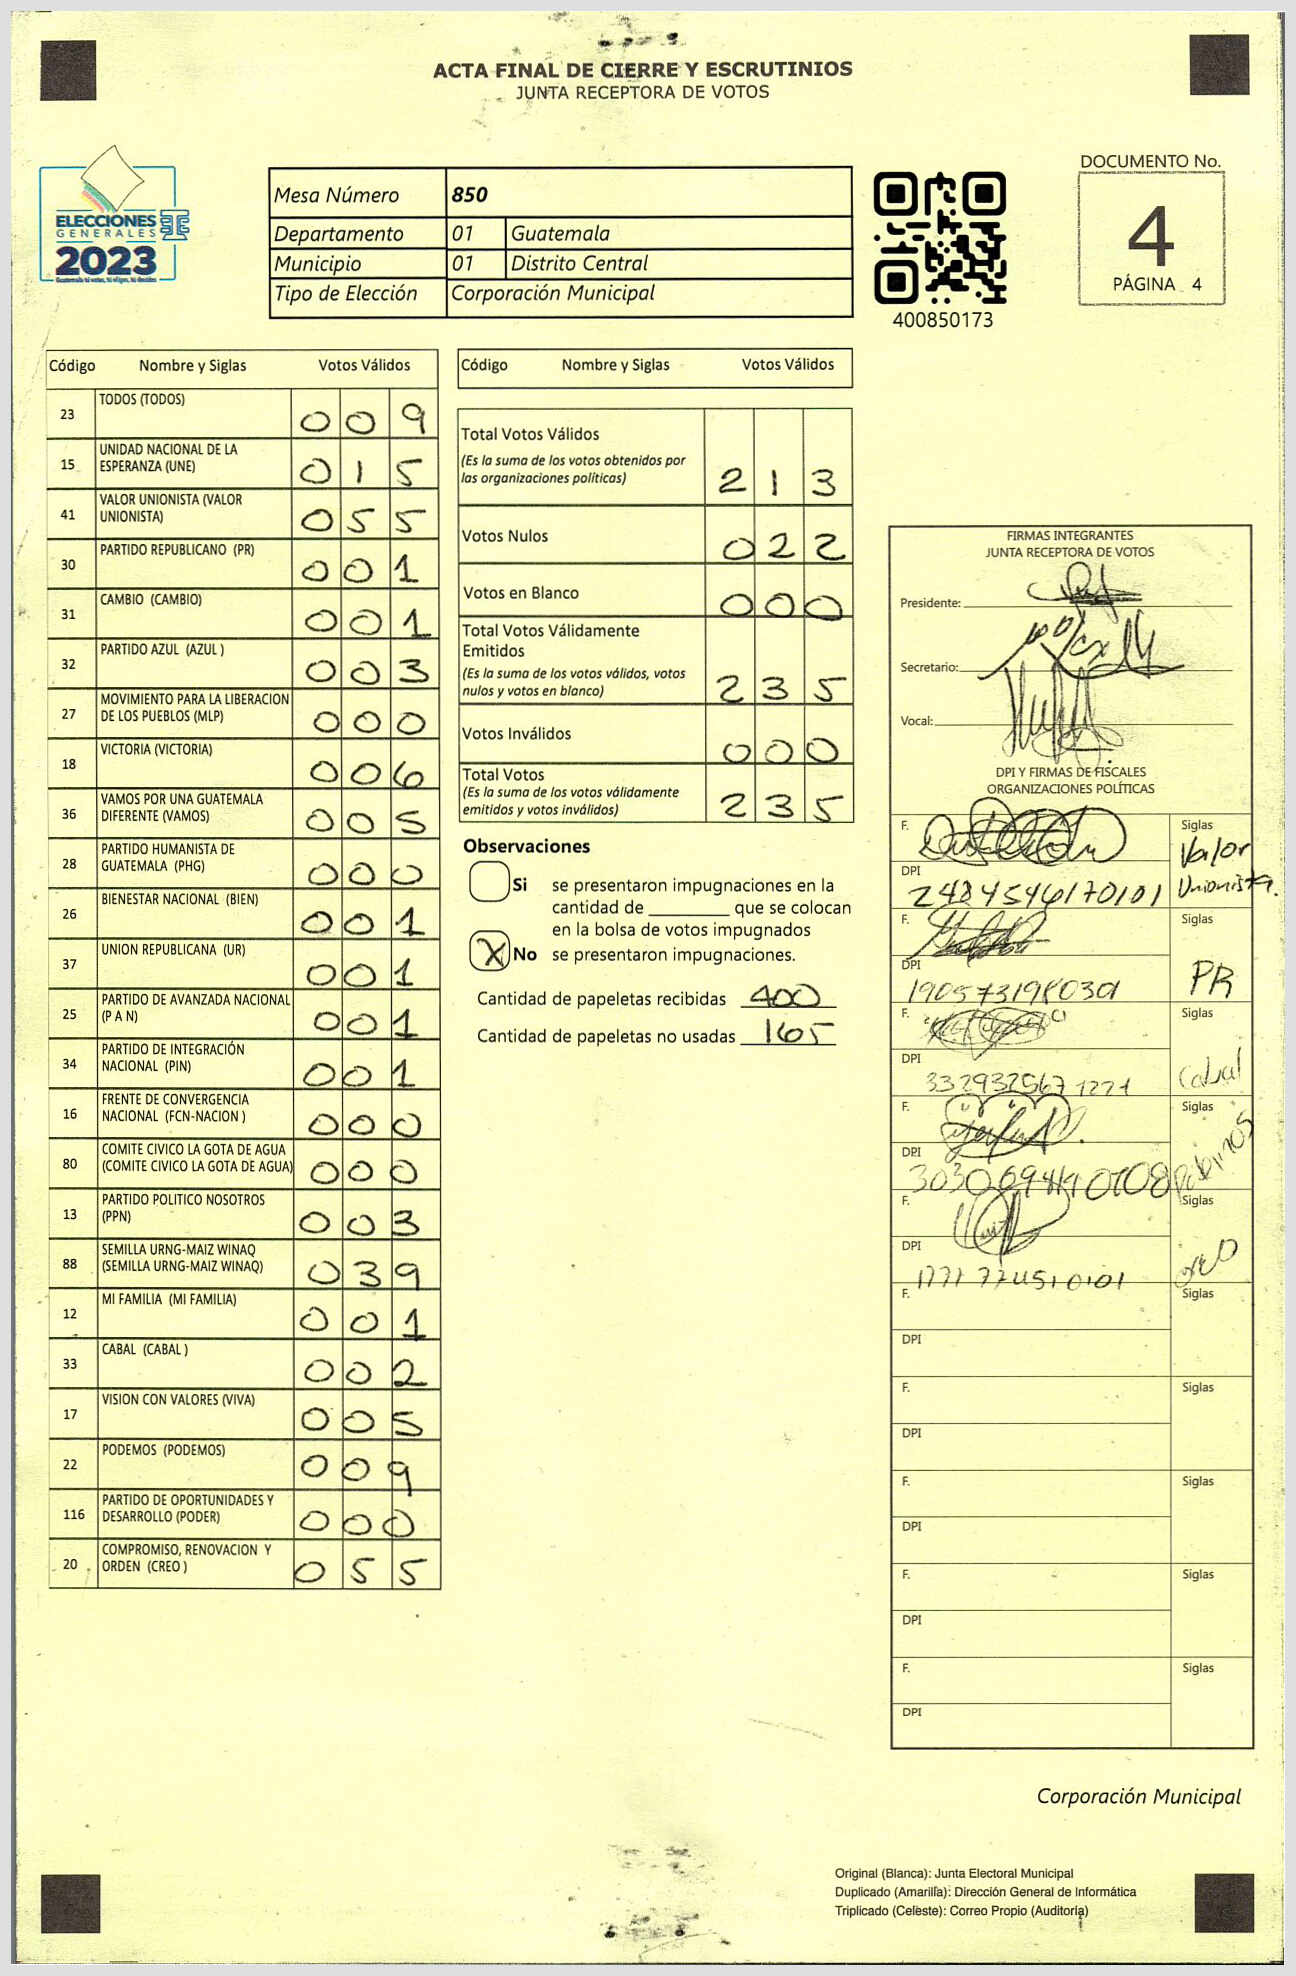 ACTA FINAL DE CIERRE Y ESCRUTINIOS
JUNTA RECEPTORA DE VOTOS
ELECCIONES
GENERALES
2023
Mesa Número 850
Departamento 01 Guatemala
Municipio 01 Distrito Central
Tipo de Elección Corporación Municipal
400850173
DOCUMENTO No.
4
PÁGINA 4
Código Nombre y Siglas Votos Válidos
23 TODOS (TODOS) 0 0 9
15 UNIDAD NACIONAL DE LA
ESPERANZA (UNE) 0 1 5
41 VALOR UNIONISTA (VALOR
UNIONISTA) 0 5 5
30 PARTIDO REPUBLICANO (PR) 0 0 1
31 CAMBIO (CAMBIO) 0 0 1
32 PARTIDO AZUL (AZUL ) 0 0 3
27 MOVIMIENTO PARA LA LIBERACION
DE LOS PUEBLOS (MLP) 0 0 0
18 VICTORIA (VICTORIA) 0 0 6
36 VAMOS POR UNA GUATEMALA
DIFERENTE (VAMOS) 0 0 5
28 PARTIDO HUMANISTA DE
GUATEMALA (PHG) 0 0 0
26 BIENESTAR NACIONAL (BIEN) 0 0 1
37 UNION REPUBLICANA (UR) 0 0 1
25 PARTIDO DE AVANZADA NACIONAL
(P A N) 0 0 1
34 PARTIDO DE INTEGRACIÓN
NACIONAL (PIN) 0 0 1
16 FRENTE DE CONVERGENCIA
NACIONAL (FCN-NACION ) 0 0 0
80 COMITE CIVICO LA GOTA DE AGUA
(COMITE CIVICO LA GOTA DE AGUA) 0 0 0
13 PARTIDO POLITICO NOSOTROS
(PPN) 0 0 3
88 SEMILLA URNG-MAIZ WINAQ
(SEMILLA URNG-MAIZ WINAQ) 0 3 9
12 MI FAMILIA (MI FAMILIA) 0 0 1
33 CABAL (CABAL ) 0 0 2
17 VISION CON VALORES (VIVA) 0 0 5
22 PODEMOS (PODEMOS) 0 0 9
116 PARTIDO DE OPORTUNIDADES Y
DESARROLLO (PODER) 0 0 0
20 COMPROMISO, RENOVACION Y
ORDEN (CREO ) 0 5 5
Código Nombre y Siglas Votos Válidos
Total Votos Válidos
(Es la suma de los votos obtenidos por
las organizaciones políticas) 2 1 3
Votos Nulos 0 2 2
Votos en Blanco 0 0 0
Total Votos Válidamente
Emitidos
(Es la suma de los votos válidos, votos
nulos y votos en blanco) 2 3 5
Votos Inválidos 0 0 0
Total Votos
(Es la suma de los votos válidamente
emitidos y votos inválidos) 2 3 5
Observaciones
Si se presentaron impugnaciones en la
cantidad de ________ que se colocan
en la bolsa de votos impugnados
X No se presentaron impugnaciones.
Cantidad de papeletas recibidas 400
Cantidad de papeletas no usadas 165
FIRMAS INTEGRANTES
JUNTA RECEPTORA DE VOTOS
Presidente:
Secretario:
Vocal:
DPI Y FIRMAS DE FISCALES
ORGANIZACIONES POLÍTICAS
F. Siglas
Valor
DPI Unionista.
2484546170101
F. Siglas
DPI PR
1905731980301
F. Siglas
DPI
Cabal
F. Siglas
DPI
F. Siglas
DPI
F. Siglas
DPI
F. Siglas
DPI
F. Siglas
DPI
F. Siglas
DPI
F. Siglas
DPI
Corporación Municipal
Original (Blanca): Junta Electoral Municipal
Duplicado (Amarilla): Dirección General de Informática
Triplicado (Celeste): Correo Propio (Auditoría)